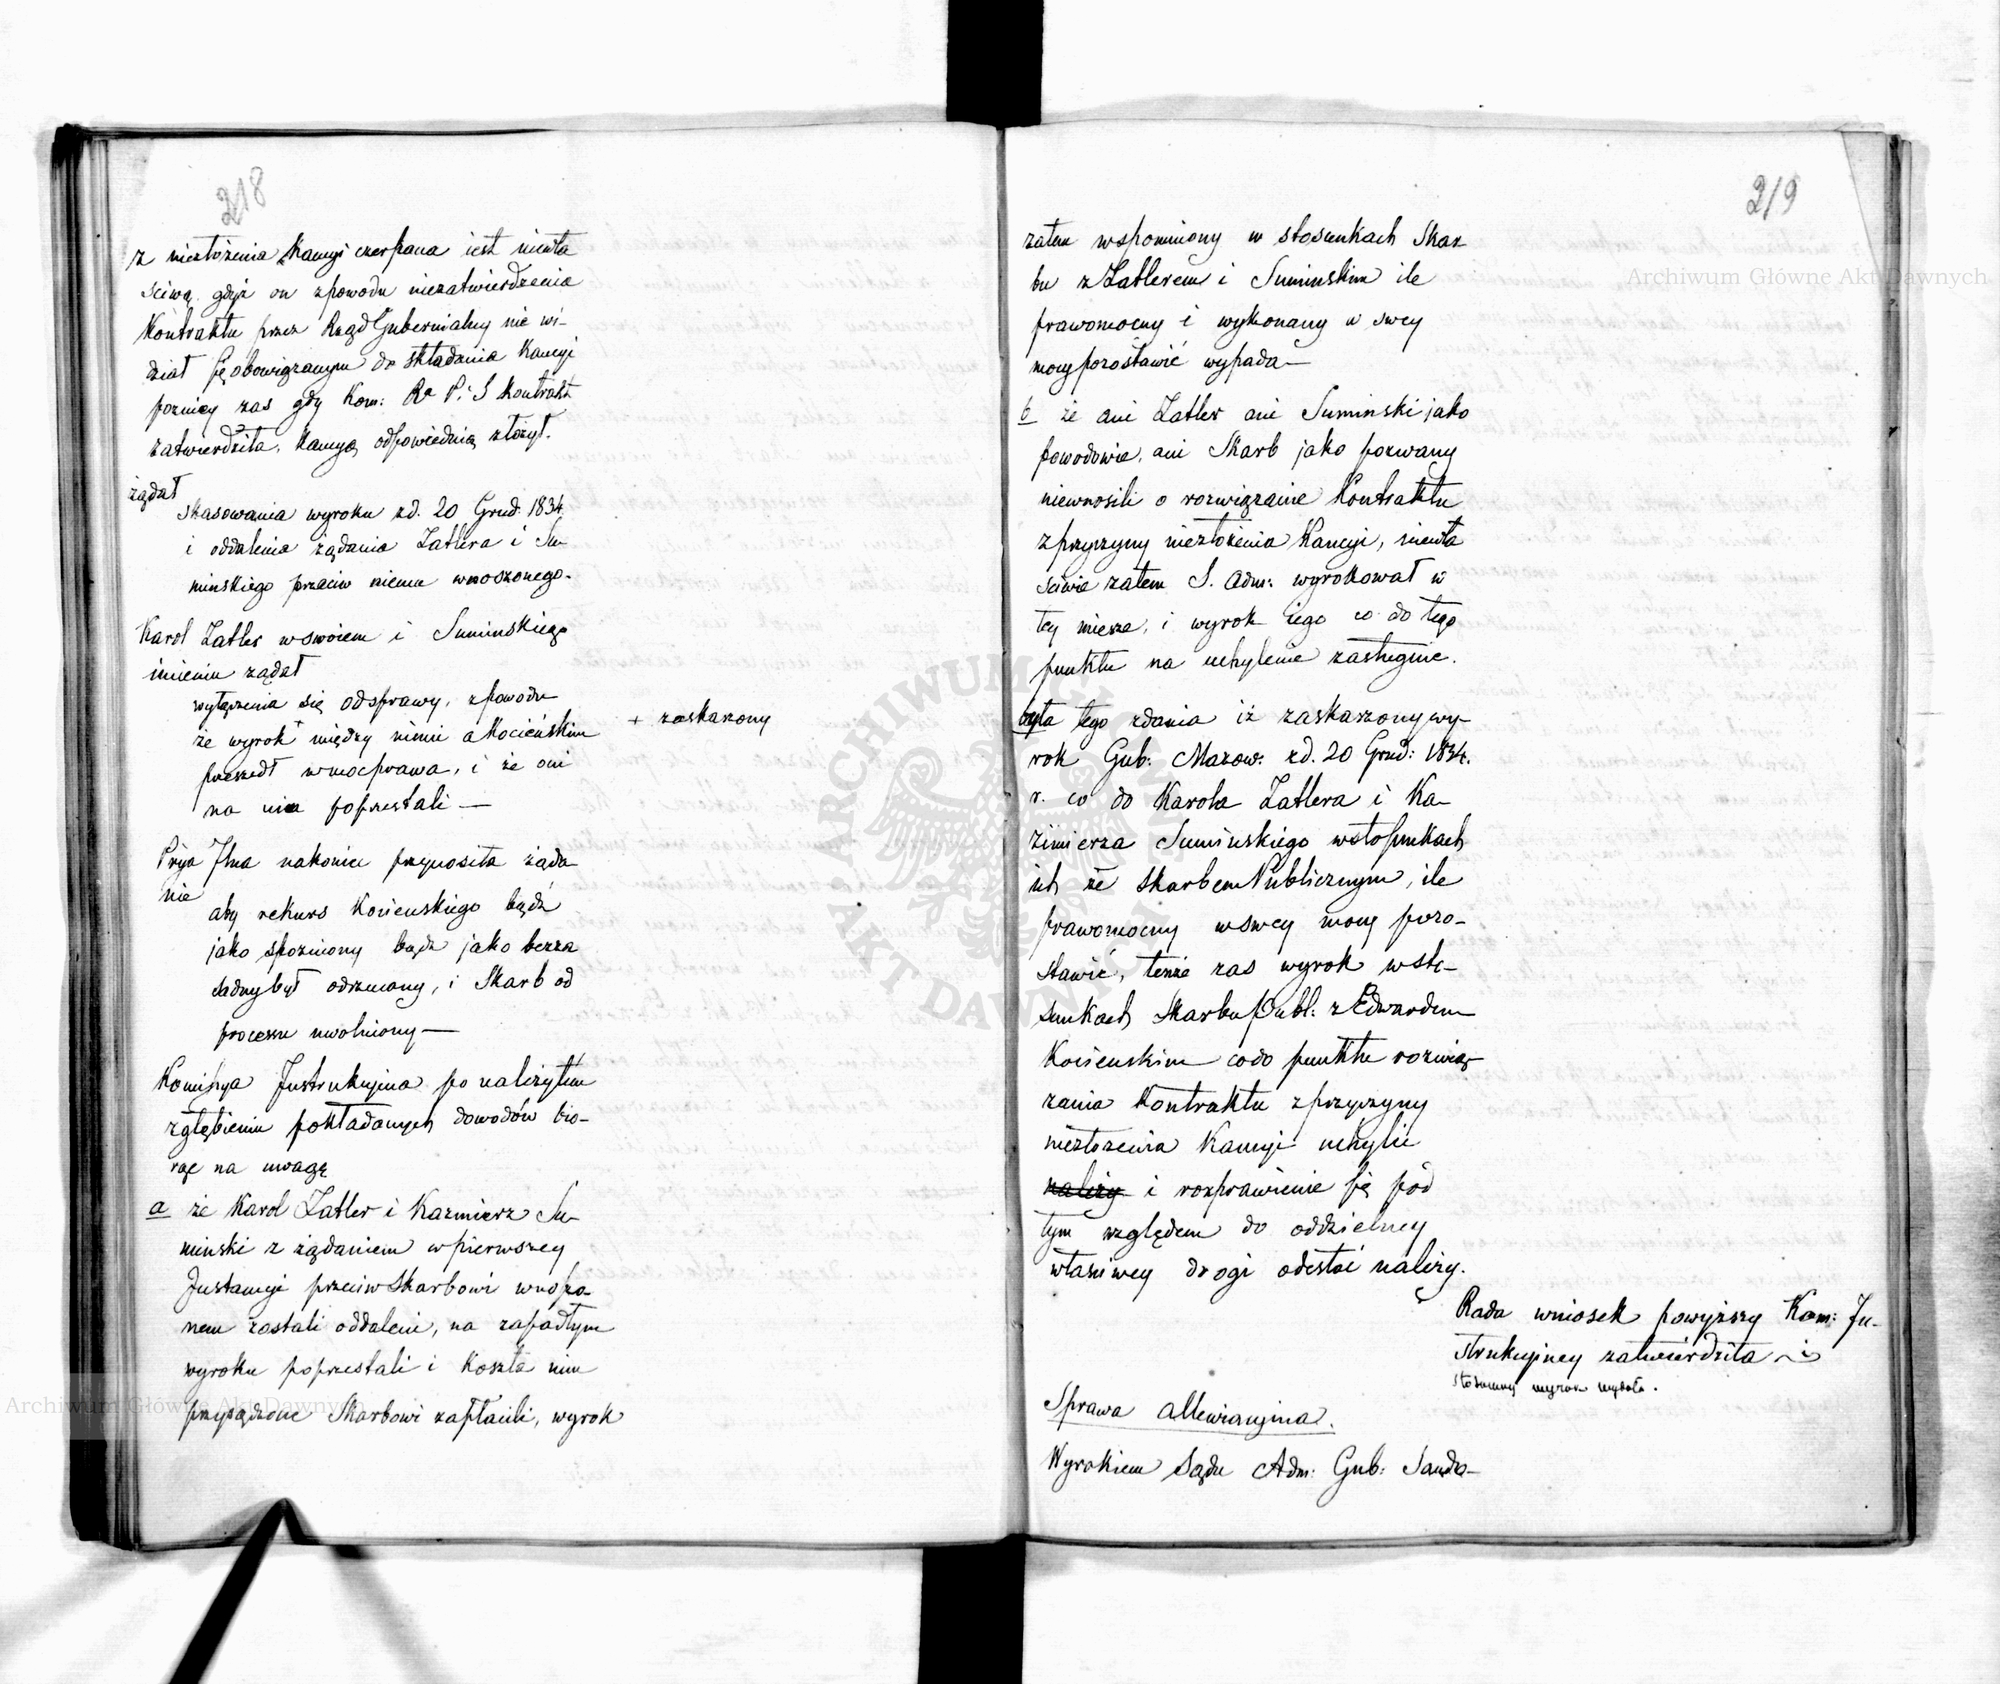 218
z niezłożenia Kaucyi czerpana iest niewła
sciwą gdyż on zpowodu niezatwierdzenia
Kontraktu przez Rząd Gubernialny nie wi-
dział się obowiązanym do składania Kaucyi
pozniey zas gdy Kom: Ra P. i S Kontrakt
zatwierdziła, Kaucyą odpowiednią złożył.
żądał
skasowania wyroku zd. 20 Grud: 1834
i oddalenia żądania Zatlera i Su-
minskiego przeciw niemu wnoszonego.
Karol Zatler wswoiem i Suminskiego
imieniu żądał
wyłączenia się odsprawy, zpowodu
że wyrok między nimi a Kocieńskim
+ zaskarzony
przeszedł wmocprawa, i że oni
na nim poprzestali —
Prrya Jlna nakoniec przynosiła żąda
nie
aby rekurs Kocienskiego bądź
jako spozniony bądz jako bezza
sadny był odrzucony, i Skarb od
processu uwolniony —
Komissya Instrukcyina po należytem
zgłębieniu pokładanych dowodów bio-
rąc na uwagę
a że Karol Zatler i Kazmierz Su-
minski z żądaniem wpierwszey
Instancyi przeciw Skarbowi wnoszo-
nem zostali oddaleni, na zapadłym
wyroku poprzestali i koszta nim
przysądzone Skarbowi zapłacili, wyrok
219
zatem wspomniony w stosunkach Skar
bu z Zatlerem i Suminskim ile
prawomocny i wykonany w swey
mocy pozostawić wypada —
b że ani Zatler ani Suminski jako
powodowie, ani Skarb jako pozwany
niewnosili o rozwiązanie Kontraktu
zprzyczyny niezłożenia Kaucyi, niewła
sciwie zatem S. Adm: wyrokował w
tey mierze, i wyrok iego co do tego
punktu na uchylenie zasługuie.
była tego zdania iż zaskarzony wy-
rok Gub: Mazow: zd. 20 Grud: 1834.
r. co do Karola Zatlera i Ka-
zimierza Suminskiego wstosunkach
ich ze Skarbem Publicznym, ile
prawomocny wswey mocy pozo-
stawić, tenże zas wyrok wsto-
sunkach Skarbu Publ: z Edwardem
Kocienskim codo punktu rozwią-
zania Kontraktu zprzyczyny
niezłozenia Kaucyi uchylić
należy i rozprawienie się pod
tym względem do oddzielney
własciwey drogi odesłać należy.
Rada wniosek powyższy Kom: In-
strukcyiney zatwierdziła i
stosowny wyrok wydała.
Sprawa allewiacyina.
Wyrokiem Sądu Adm: Gub: Sando-
Archiwum Główne Akt Dawnych
Archiwum Główne Akt Dawnych
ARCHIWUM GŁÓWNE AKT DAWNYCH